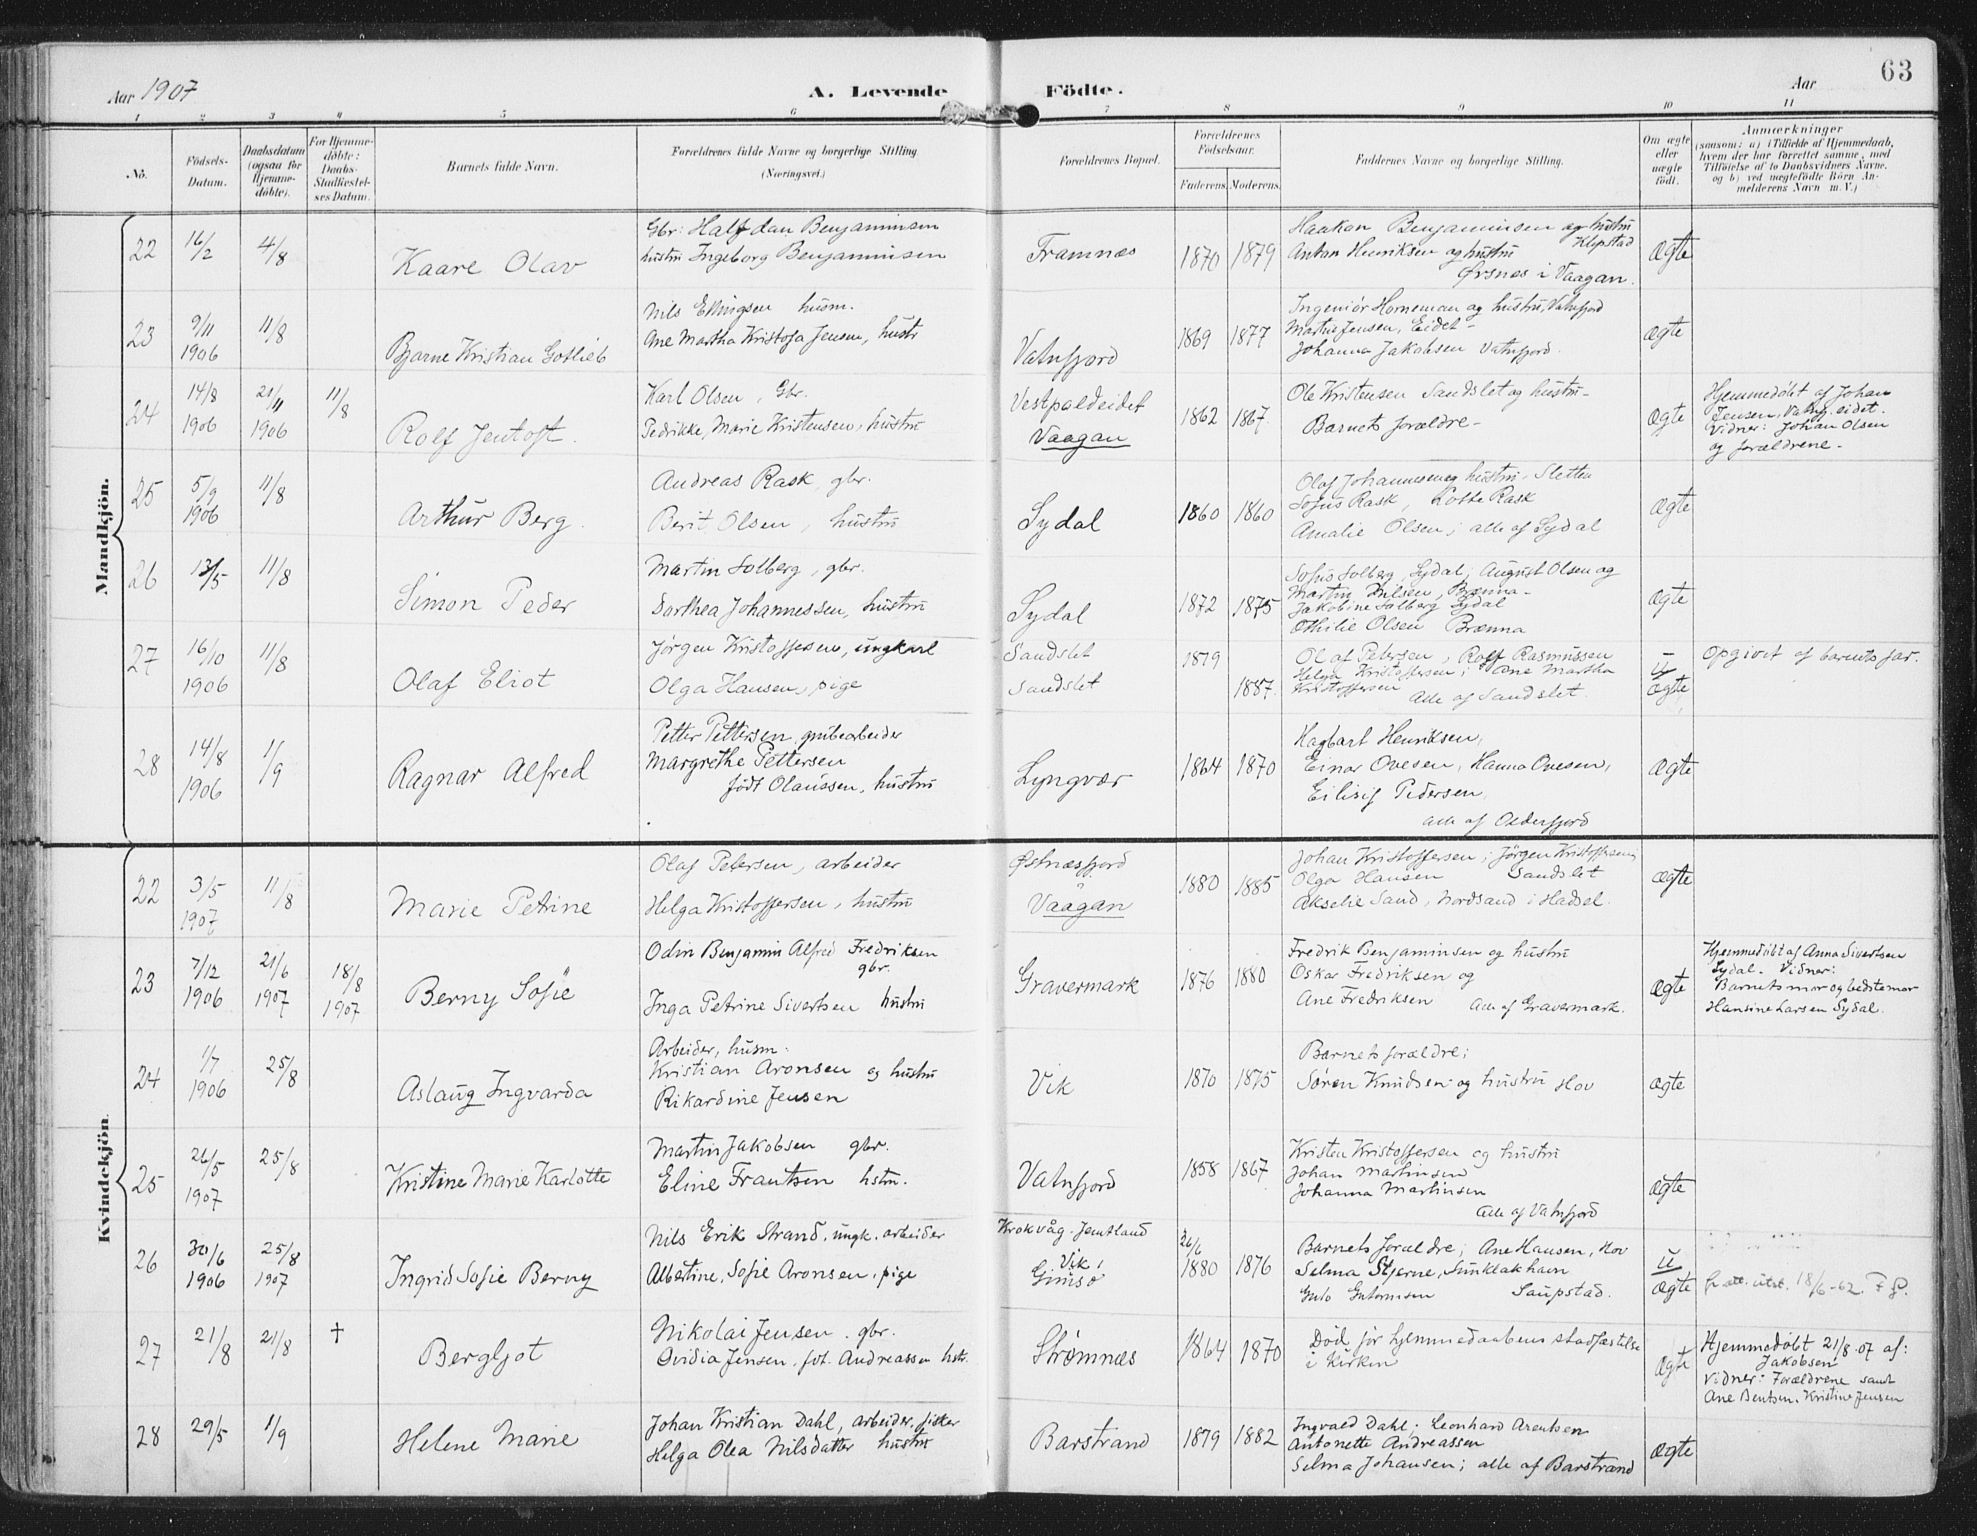 Aar 1907
A. Levende Födte.
Aar
63
1 2 3 4 5 6 7 8 9 10 11
No.
Födsels-Datum.
Daabsdatum (ogsaa for Hjemmedöbte).
For Hjemmedöbte: Daabs-Stadfæstelses Datum.
Barnets fulde Navn.
Forældrenes fulde Navne og borgerlige Stilling. (Næringsvei.)
Forældrenes Bopæl.
Forældrenes Födselsaar.
Faderens. Moderens.
Faddernes Navne og borgerlige Stilling.
Om ægte eller uægte födt.
Anmærkninger
(saasom: a) i Tilfælde af Hjemmedaab,
hvem der har forrettet samme, med
Tilföielse af to Daabsvidners Navne.
og b) ved uægtefödte Börn An-
melderens Navn m. V.)
Mandkjön.
22 16/2 4/8 Kaare Olav
Gbr: Halfdan Benjaminsen
hustru Ingeborg Benjaminsen
Framnæs 1870 1879
Haakon Benjaminsen og hustru
Klepstad
Anton Henriksen og hustru
Ørsnes i Vaagan.
Ægte
23 9/11 1906 11/8 Bjarne Kristian Gotlieb
Nils Ellingsen husm.
Ane Martha Kristofa Jensen, hustr
Vatnfjord 1869 1877
Ingeniør Horneman og hustru, Vatnfjord
Martin Jensen, Eidet -
Johanna Jakobsen Vatnfjord.
ægte
24 14/8 1906 21/11 1906 11/8 Rolf Jentoft.
Karl Olsen, Gbr.
Pedrikke, Marie Kristensen, hustru
Vestpaldeidet
Vaagan 1862 1867.
Ole Kristensen Sandslet og hustru -
Barnets forældre -
ægte
Hjemmedøbt af Johan
Jensen, Vatnf. eidet.
Vidner: Johan Olsen
og forældrene -
25 5/9 1906 11/8 Arthur Berg.
Andreas Rask, gbr.
Berit Olsen, hustru
Sydal 1860 1860
Olaf Johannesen og hustru, Sletten
Sofus Rask, Lotte Rask
Amalie Olsen; alle af Sydal
ægte
26 13/5 11/8 Simon Peder
Martin Solberg, gbr.
Dorthea Johannessen, hustru
Sydal 1872 1875
Sofus Solberg, Sydal; August Olsen og
Martin Nilsen, Brænna -
Jakobine Solberg Sydal
Othilie Olsen Brænna
ægte
27 16/10 1906 11/8 Olaf Eliot
Jørgen Kristoffesen, ungkarl
Olga Hansen, pige
Sandslet 1879
Sandslet 1887.
Olaf Petersen, Rolf Rasmussen
Helga Kristoffersen; Ane Martha
Kristoffersen Alle af Sandslet.
u ægte
opgivet af barnets far.
28 14/8 1906 1/9 Ragnar Alfred
Petter Pettersen, grubearbeider
Margrethe Pettersen
født Olaussen, hustru
Lyngvær 1864 1870
Hagbart Henriksen,
Einar Ovesen, Hanna Ovesen,
Eilivif Pedersen,
alle af Olderfjord
Ægte
Kvindekjön.
22 3/5 1907 11/8 Marie Petrine
Olaf Petersen, arbeider
Helga Kristoffersen, hustru
Østnæsfjord
Vaagan 1880 1885
Johan Kristoffersen; Jørgen Kristoffersen,
Olga Hansen Sandslet
Akselie Sand, Nordsand i Hadsel.
ægte
23 7/12 1906 21/6 1907 18/8 1907 Berny Sofie
Odin Benjamin Alfred Fredriksen
gbr.
Inga Petrine Sivertsen hustru
Gravermark 1876 1880
Fredrik Benjaminsen og hustru
Oskar Fredriksen og
Ane Fredriksen Alle af Gravermark.
ægte
Hjemmedøbt af Anna Sivertsen
Sydal. Vidner:
Barnets mor og bedstemor
Hansine Larsen Sydal.
24 1/7 1906 25/8 Aslaug Ingvarda
Arbeider, husm.
Kristian Aronsen og hustru
Rikardine Jensen
Vik 1870 1875
Barnets forældre;
Søren Knudsen og hustru Hov
ægte
25 26/5 1907 25/8 Kristine Marie Karlotte
Martin Jakobsen gbr.
Eline Frantsen hstru.
Vatnfjord 1858 1867
Kristen Kristoffersen og hustru
Johan Martinsen
Johanna Martinsen
Alle af Vatnfjord
ægte
26 30/6 1906 25/8 1907 Ingrid Sofie Berny
Nils Erik Strand, ungk. arbeider
Albertine, Sofie Aronsen, pige
Krokvåg Jemtland
Vik,
Gimsø 26/6 1880 1876
Barnets forældre; Ane Hansen, Hov
Selma Stjerne, Sunklakhavn
Guto Gutormsen Saupstad.
u ægte
fr att. utst. 18/6-62. F P.
27 21/8 21/8 † Bergljot
Nikolai Jensen. gbr.
Ovidia Jensen, føt. Andreassen hstr.
Strømnæs 1864 1870
Død før hjemmedaabens stadfæstelse
i Kirken
Ægte
Hjemmedøbt 21/8 07 af:
Jakobsen
Vidner: Forældrene samt
Ane Bentsen, Kristine Jensen
28 29/5 1/9 Helene Marie
Johan Kristian Dahl, arbeider, fisker
Helga Olea Nilsdatter hustru
Barstrand 1879 1882
Ingvald Dahl; Leonhard Arentsen
Antonette Andreassen
Selma Johansen; alle af Barstrand
Ægte